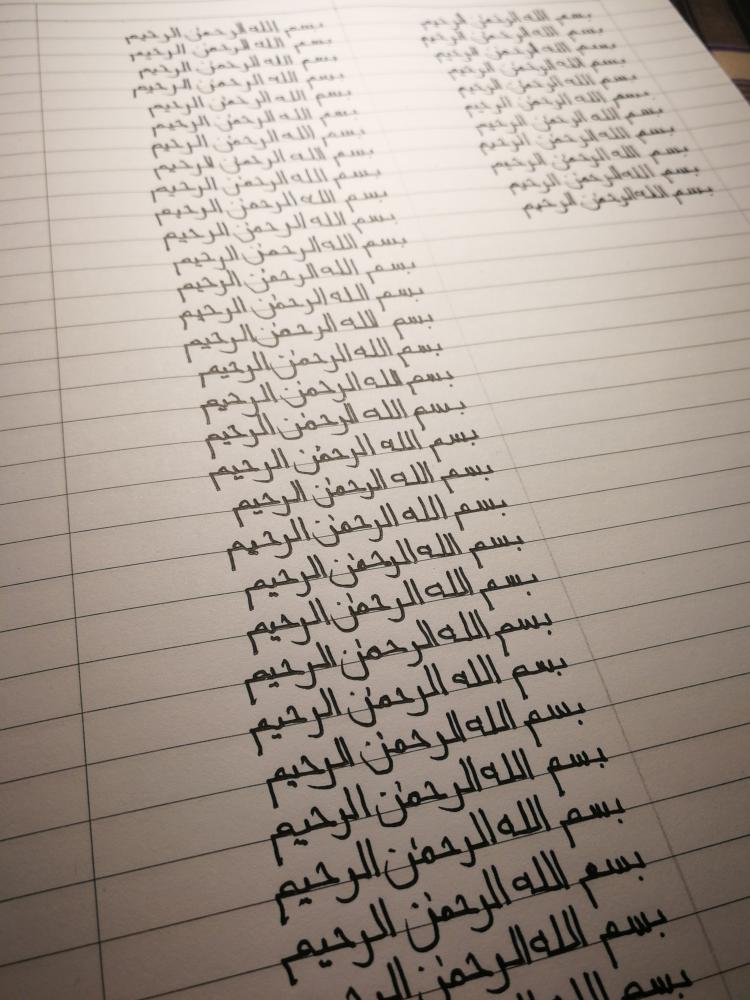 بسم الله الرحمٰن الرحيم
بسم الله الرحمٰن الرحيم
بسم الله الرحمٰن الرحيم
بسم الله الرحمٰن الرحيم
بسم الله الرحمٰن الرحيم
بسم الله الرحمٰن الرحيم
بسم الله الرحمٰن الرحيم
بسم الله الرحمٰن الرحيم
بسم الله الرحمٰن الرحيم
بسم الله الرحمٰن الرحيم
بسم الله الرحمٰن الرحيم
بسم الله الرحمٰن الرحيم
بسم الله الرحمٰن الرحيم
بسم الله الرحمٰن الرحيم
بسم الله الرحمٰن الرحيم
بسم الله الرحمٰن الرحيم
بسم الله الرحمٰن الرحيم
بسم الله الرحمٰن الرحيم
بسم الله الرحمٰن الرحيم
بسم الله الرحمٰن الرحيم
بسم الله الرحمٰن الرحيم
بسم الله الرحمٰن الرحيم
بسم الله الرحمٰن الرحيم
بسم الله الرحمٰن الرحيم
بسم الله الرحمٰن الرحيم
بسم الله الرحمٰن الرحيم
بسم الله الرحمٰن الرحيم
بسم الله الرحمٰن الرحيم
بسم الله الرحمٰن الرحيم
بسم الله الرحمٰن الرحيم
بسم الله الرحمٰن الرحيم
بسم الله الرحمٰن الرحيم
بسم الله الرحمٰن الرحيم
بسم الله الرحمٰن الرحيم
بسم الله الرحمٰن الرحيم
بسم الله الرحمٰن الرحيم
بسم الله الرحمٰن الرحيم
بسم الله الرحمٰن الرحيم
بسم الله الرحمٰن الرحيم
بسم الله الرحمٰن الرحيم
بسم الله الرحمٰن
بسم الله